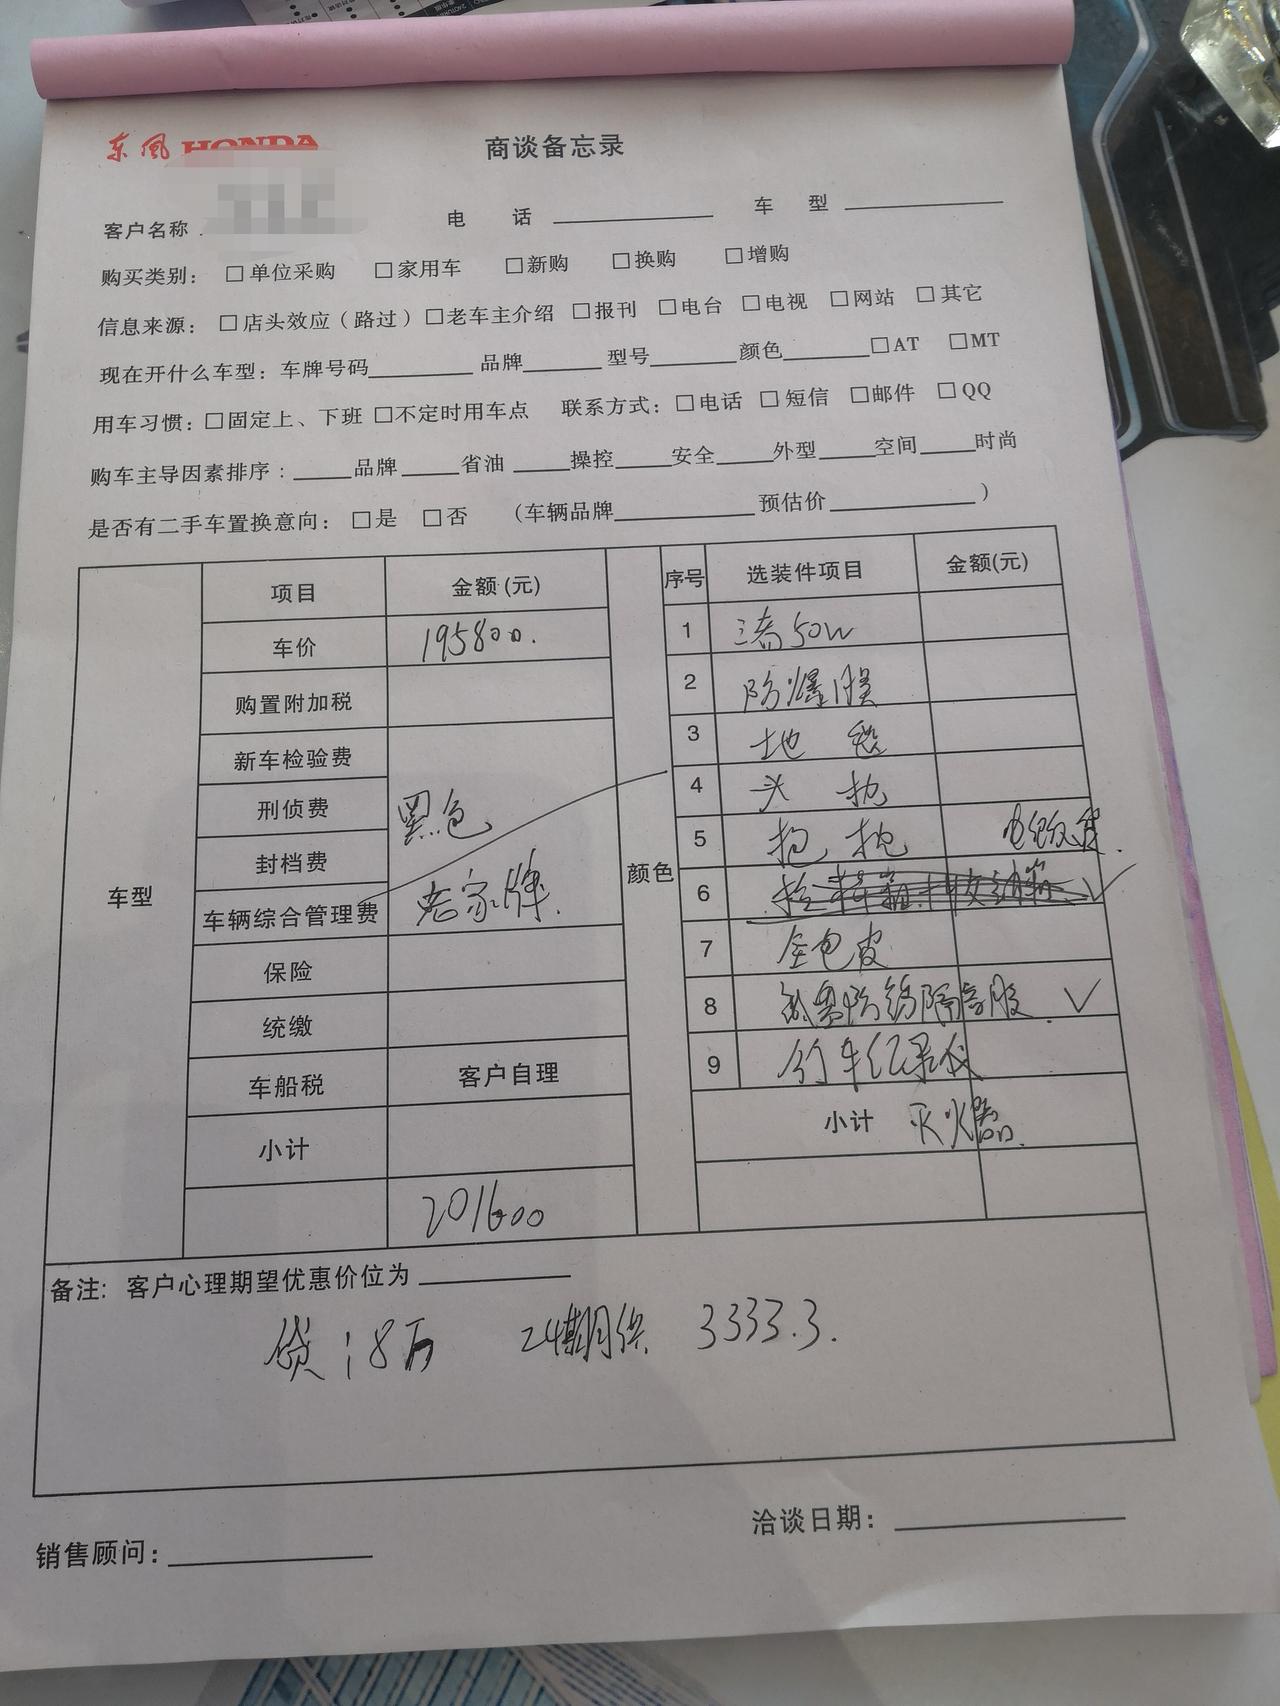 东风 HONDA
商谈备忘录
客户名称 电 话 车 型
购买类别: □单位采购 □家用车 □新购 □换购 □增购
信息来源: □店头效应（路过）□老车主介绍 □报刊 □电台 □电视 □网站 □其它
现在开什么车型: 车牌号码 品牌 型号 颜色 □AT □MT
用车习惯: □固定上、下班 □不定时用车点 联系方式: □电话 □短信 □邮件 □QQ
购车主导因素排序: 品牌 省油 操控 安全 外型 空间 时尚
是否有二手车置换意向: □是 □否 （车辆品牌 预估价 ）
车型 项目 金额(元) 颜色 序号 选装件项目 金额(元)
车价 195800. 1 50W
购置附加税 2 防爆膜
新车检验费 3 地毯
刑侦费 黑色 4 头枕
封档费 5 抱枕
车辆综合管理费 老家牌. 6
保险 7 全包皮
统缴 8
车船税 客户自理 9 行车记录仪
小计 小计 灭火器.
201600
备注: 客户心理期望优惠价位为
贷: 8万 24期月供 3333.3.
洽谈日期:
销售顾问: